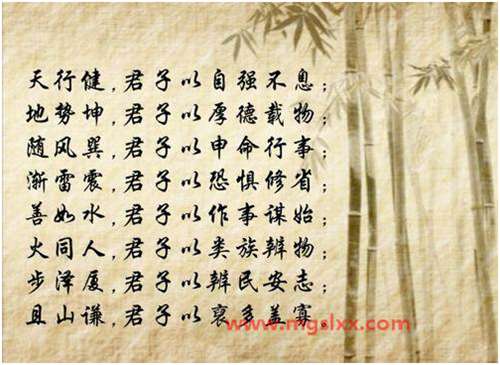 天行健,君子以自强不息;
地势坤,君子以厚德载物;
随风巽,君子以申命行事;
渐雷震,君子以恐惧修省;
善如水,君子以作事谋始;
火同人,君子以类族辨物;
步泽厦,君子以辨民安志;
且山谦,君子以裒多益寡,
www.mgslxx.com